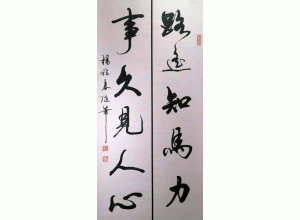 路遥知馬力
事久見人心